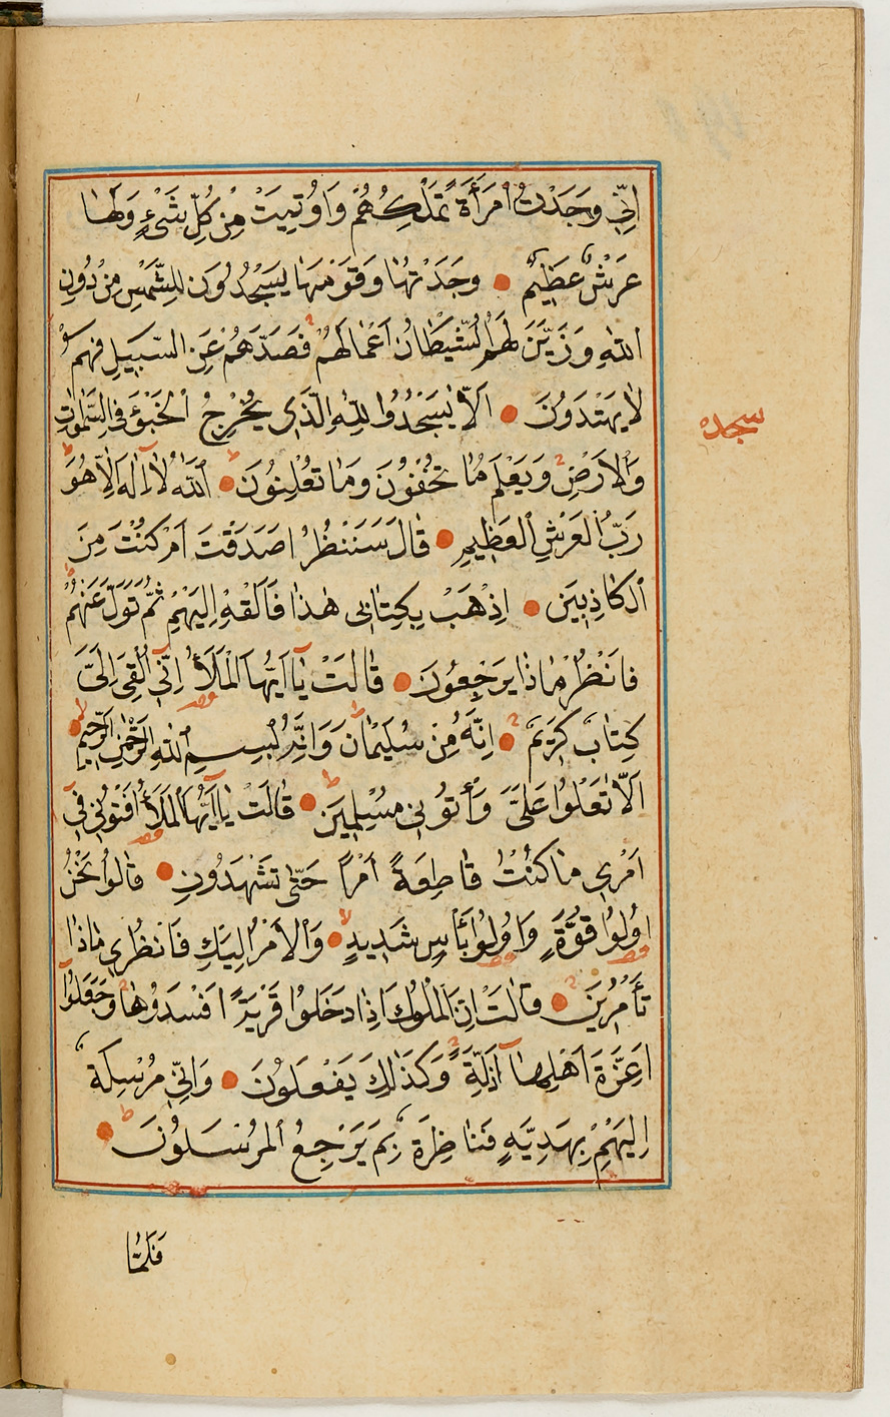 اِنّٖي وَجَدْتُ امْرَأَةً تَمْلِكُهُمْ وَاُوتِيَتْ مِنْ كُلِّ شَيْءٍ وَلَهَا
عَرْشٌ عَظِيمٌ ● وَجَدْتُهَا وَقَوْمَهَا يَسْجُدُونَ لِلشَّمْسِ مِنْ دُونِ
اللّٰهِ وَزَيَّنَ لَهُمُ الشَّيْطَانُ اَعْمَالَهُمْ فَصَدَّهُمْ عَنِ السَّبِيلِ فَهُمْ
لَا يَهْتَدُونَ ● اَلَّا يَسْجُدُوا لِلّٰهِ الَّذِي يُخْرِجُ الْخَبْءَ فِي السَّمٰوَاتِ
سجده
وَالْاَرْضِ وَيَعْلَمُ مَا تُخْفُونَ وَمَا تُعْلِنُونَ ● اَللّٰهُ لَا اِلٰهَ اِلَّا هُوَ
رَبُّ الْعَرْشِ الْعَظِيمِ ● قَالَ سَنَنْظُرُ اَصَدَقْتَ اَمْ كُنْتَ مِنَ
الْكَاذِبِينَ ● اِذْهَبْ بِكِتَابِي هٰذَا فَاَلْقِهْ اِلَيْهِمْ ثُمَّ تَوَلَّ عَنْهُمْ
فَانْظُرْ مَاذَا يَرْجِعُونَ ● قَالَتْ يَا اَيُّهَا الْمَلَأُ اِنِّي اُلْقِيَ اِلَيَّ
كِتَابٌ كَرِيمٌ ● اِنَّهُ مِنْ سُلَيْمَانَ وَاِنَّهُ بِسْمِ اللّٰهِ الرَّحْمٰنِ الرَّحِيمِ ●
اَلَّا تَعْلُوا عَلَيَّ وَأْتُونِي مُسْلِمِينَ ● قَالَتْ يَا اَيُّهَا الْمَلَأُ اَفْتُونِي فِي
اَمْرِي مَا كُنْتُ قَاطِعَةً اَمْرًا حَتّٰى تَشْهَدُونِ ● قَالُوا نَحْنُ
اُولُوا قُوَّةٍ وَاُولُوا بَأْسٍ شَدِيدٍ ● وَالْاَمْرُ اِلَيْكِ فَانْظُرِي مَاذَا
تَأْمُرِينَ ● قَالَتْ اِنَّ الْمُلُوكَ اِذَا دَخَلُوا قَرْيَةً اَفْسَدُوهَا وَجَعَلُوا
اَعِزَّةَ اَهْلِهَا اَذِلَّةً وَكَذٰلِكَ يَفْعَلُونَ ● وَاِنِّي مُرْسِلَةٌ
اِلَيْهِمْ بِهَدِيَّةٍ فَنَاظِرَةٌ بِمَ يَرْجِعُ الْمُرْسَلُونَ ●
فَلَمَّا